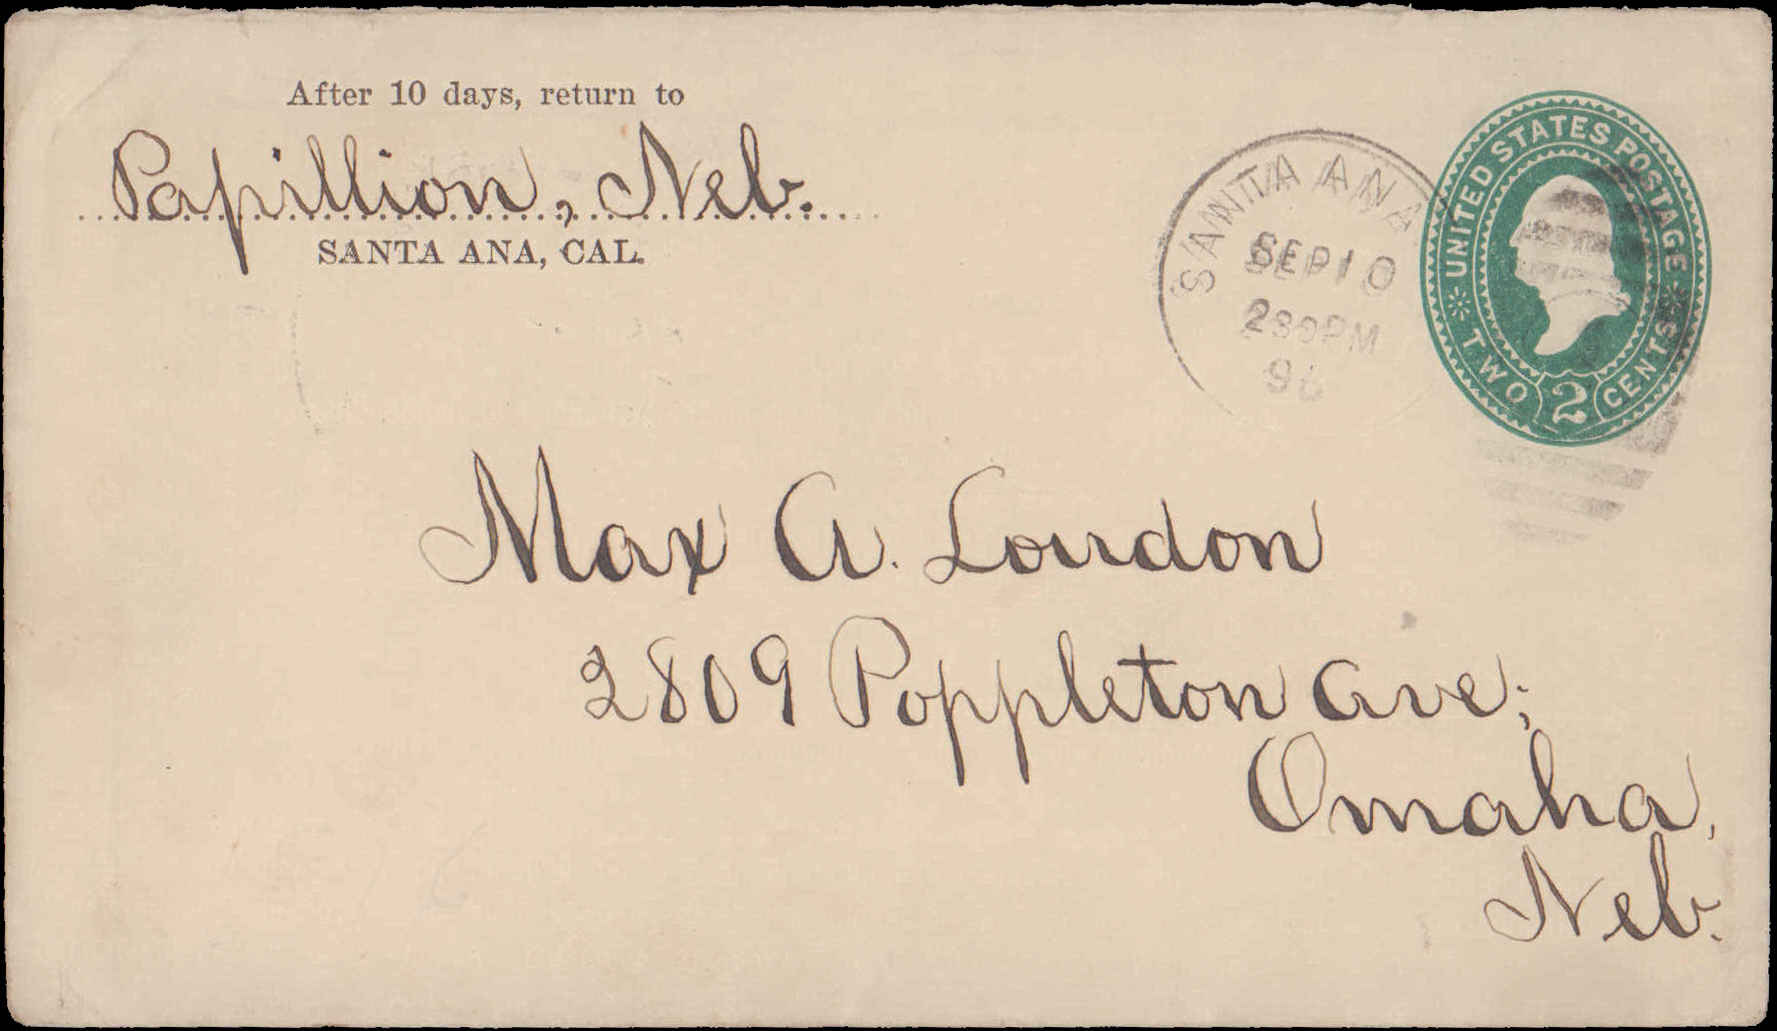 After 10 days, return to
Papillion, Neb.
SANTA ANA, CAL.
SANTA ANA
SEP 10
230PM
96
UNITED STATES POSTAGE
TWO 2 CENTS
Max A. London
2809 Poppleton Ave;
Omaha,
Neb.